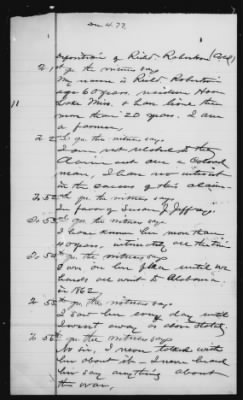 Dec 4. 77
Deposition of Rield Robertson (Col)
To 1st qu. the witness says
My name is Rield Robertson
age 60 years, residence Horn
Lake Miss. & has lived there
more than 20 years. I am
a farmer,
To 2nd qu. the witness says
I am not related to the
Claimant am a Colored
man, I have no interest
in the success of this claim.
To 52nd qu. the witness says
In favor of Susan J. Jeffries
To 53rd qu. the witness says
I have known her more than
40 years, intimately all the time
To 54th qu. the witness says
I was on her place until we
hands all went to Alabama
in 1862
To 55th qu. the witness says
I saw her every day until
I went away as above stated
To 56th qu. the witness says
No sir, I never talked with
her about it - I never heard
her say anything about
the war,
11